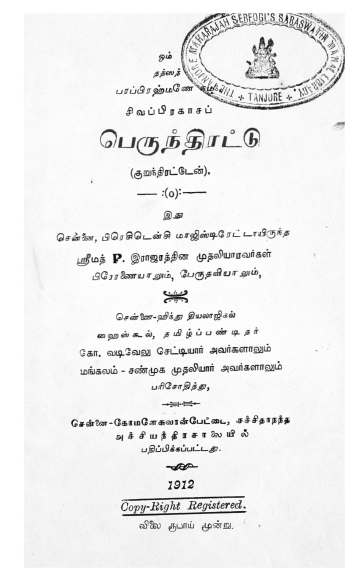 ஓம்
தத்ஸத்
பரப்பிரஹ்மணே நம:
சிவப்பிரகாசப்
பெருந்திரட்டு
(குறுந்திரட்டேன்).
—— :(o):——
இது
சென்னை, பிரெசிடென்சி மாஜிஸ்டிரேட்டாயிருந்த
ஸ்ரீமத் P. இராஜரத்தின முதலியாரவர்கள்
பிரேரணையாலும், பேருதவியாலும்,
சென்னை-ஹிந்து தியலாஜிகல்
ஹைஸ்கூல், தமிழ்ப்பண்டிதர்
கோ. வடிவேலு செட்டியார் அவர்களாலும்
மங்கலம் - சண்முக முதலியார் அவர்களாலும்
பரிசோதித்து,
சென்னை-கோமளேசுவரன்பேட்டை, சச்சிதாநந்த
அச்சியந்திரசாலையில்
பதிப்பிக்கப்பட்டது.
1912
Copy-Right Registered.
விலை ரூபாய் மூன்று.
MAHARAJAH SERFOJI'S SARASWATHI MAHAL LIBRARY
TANJORE